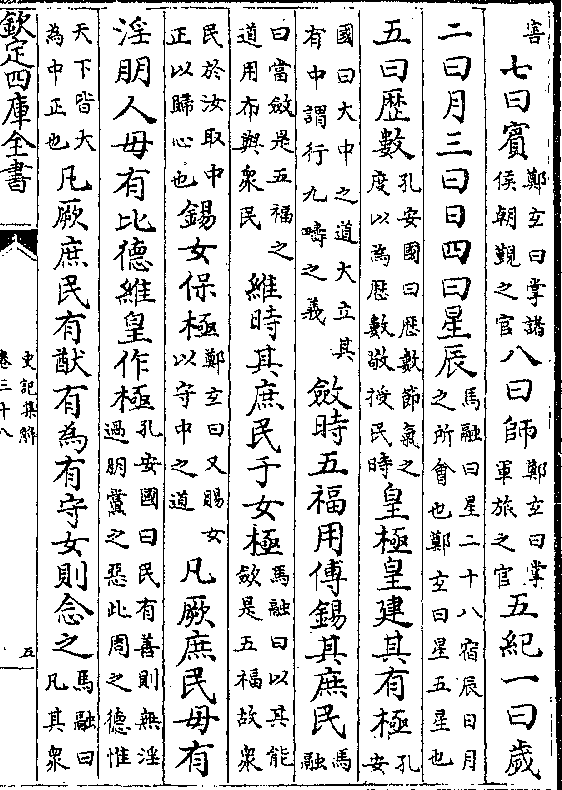 害七曰賓鄭玄曰掌諸侯朝覲之官八曰師鄭玄曰掌軍旅之官五紀一曰歲
二曰月三曰日四曰星辰馬融曰星二十八宿辰日月之所會也鄭玄曰星五星也
五曰歷數孔安國曰歷數節氣之度以為歷數敬授民時皇極皇建其有極孔安
國曰大中之道大立其有中謂行九疇之義斂時五福用傅錫其庶民馬融
曰當斂是五福之道用布與衆民維時其庶民于女極馬融曰以其能斂是五福故衆
民於汝取中正以歸心也錫女保極鄭玄曰又賜女以守中之道凡厥庶民毋有
淫朋人毋有比德維皇作極孔安國曰民有善則無淫過朋黨之惡比周之德惟
天下皆大為中正也凡厥庶民有猷有為有守女則念之馬融曰凡其衆
欽定四庫全書
史記集解
卷三十八
五